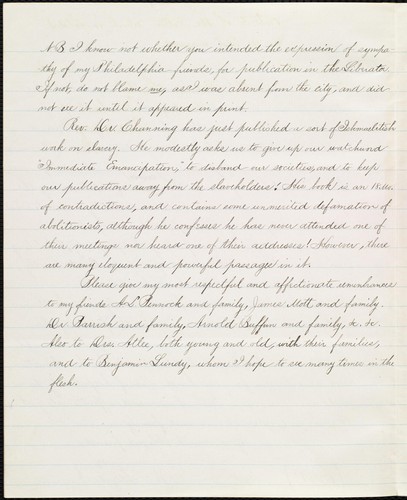 NB I know not whether you intended the expression of sympa-
thy of my Philadelphia friends, for publication in the Liberator.
If not, do not blame me, as I was absent from the city, and did
not see it until it appeared in print.
Rev. Dr. Channing has just published a sort of
work on slavery. He modestly asks us to give up our watchword
"Immediate Emancipation," to disband our societies, and to keep
our publications away from the slaveholders! His book is an
of contradictions, and contains some unmerited defamation of
abolitionists, although he confesses he has never attended one of
their meetings nor heard one of their addresses! However, there
are many eloquent and powerful passages in it.
Please give my most respectful and affectionate remembrances
to my friends A L Pennock and family, James Mott and family.
Dr Parrish and family, Arnold Buffum and family, &c. &c.
Also to Drs. Atlee, both young and old, with their families,
and to Benjamin Lundy, whom I hope to see many times in the
flesh.